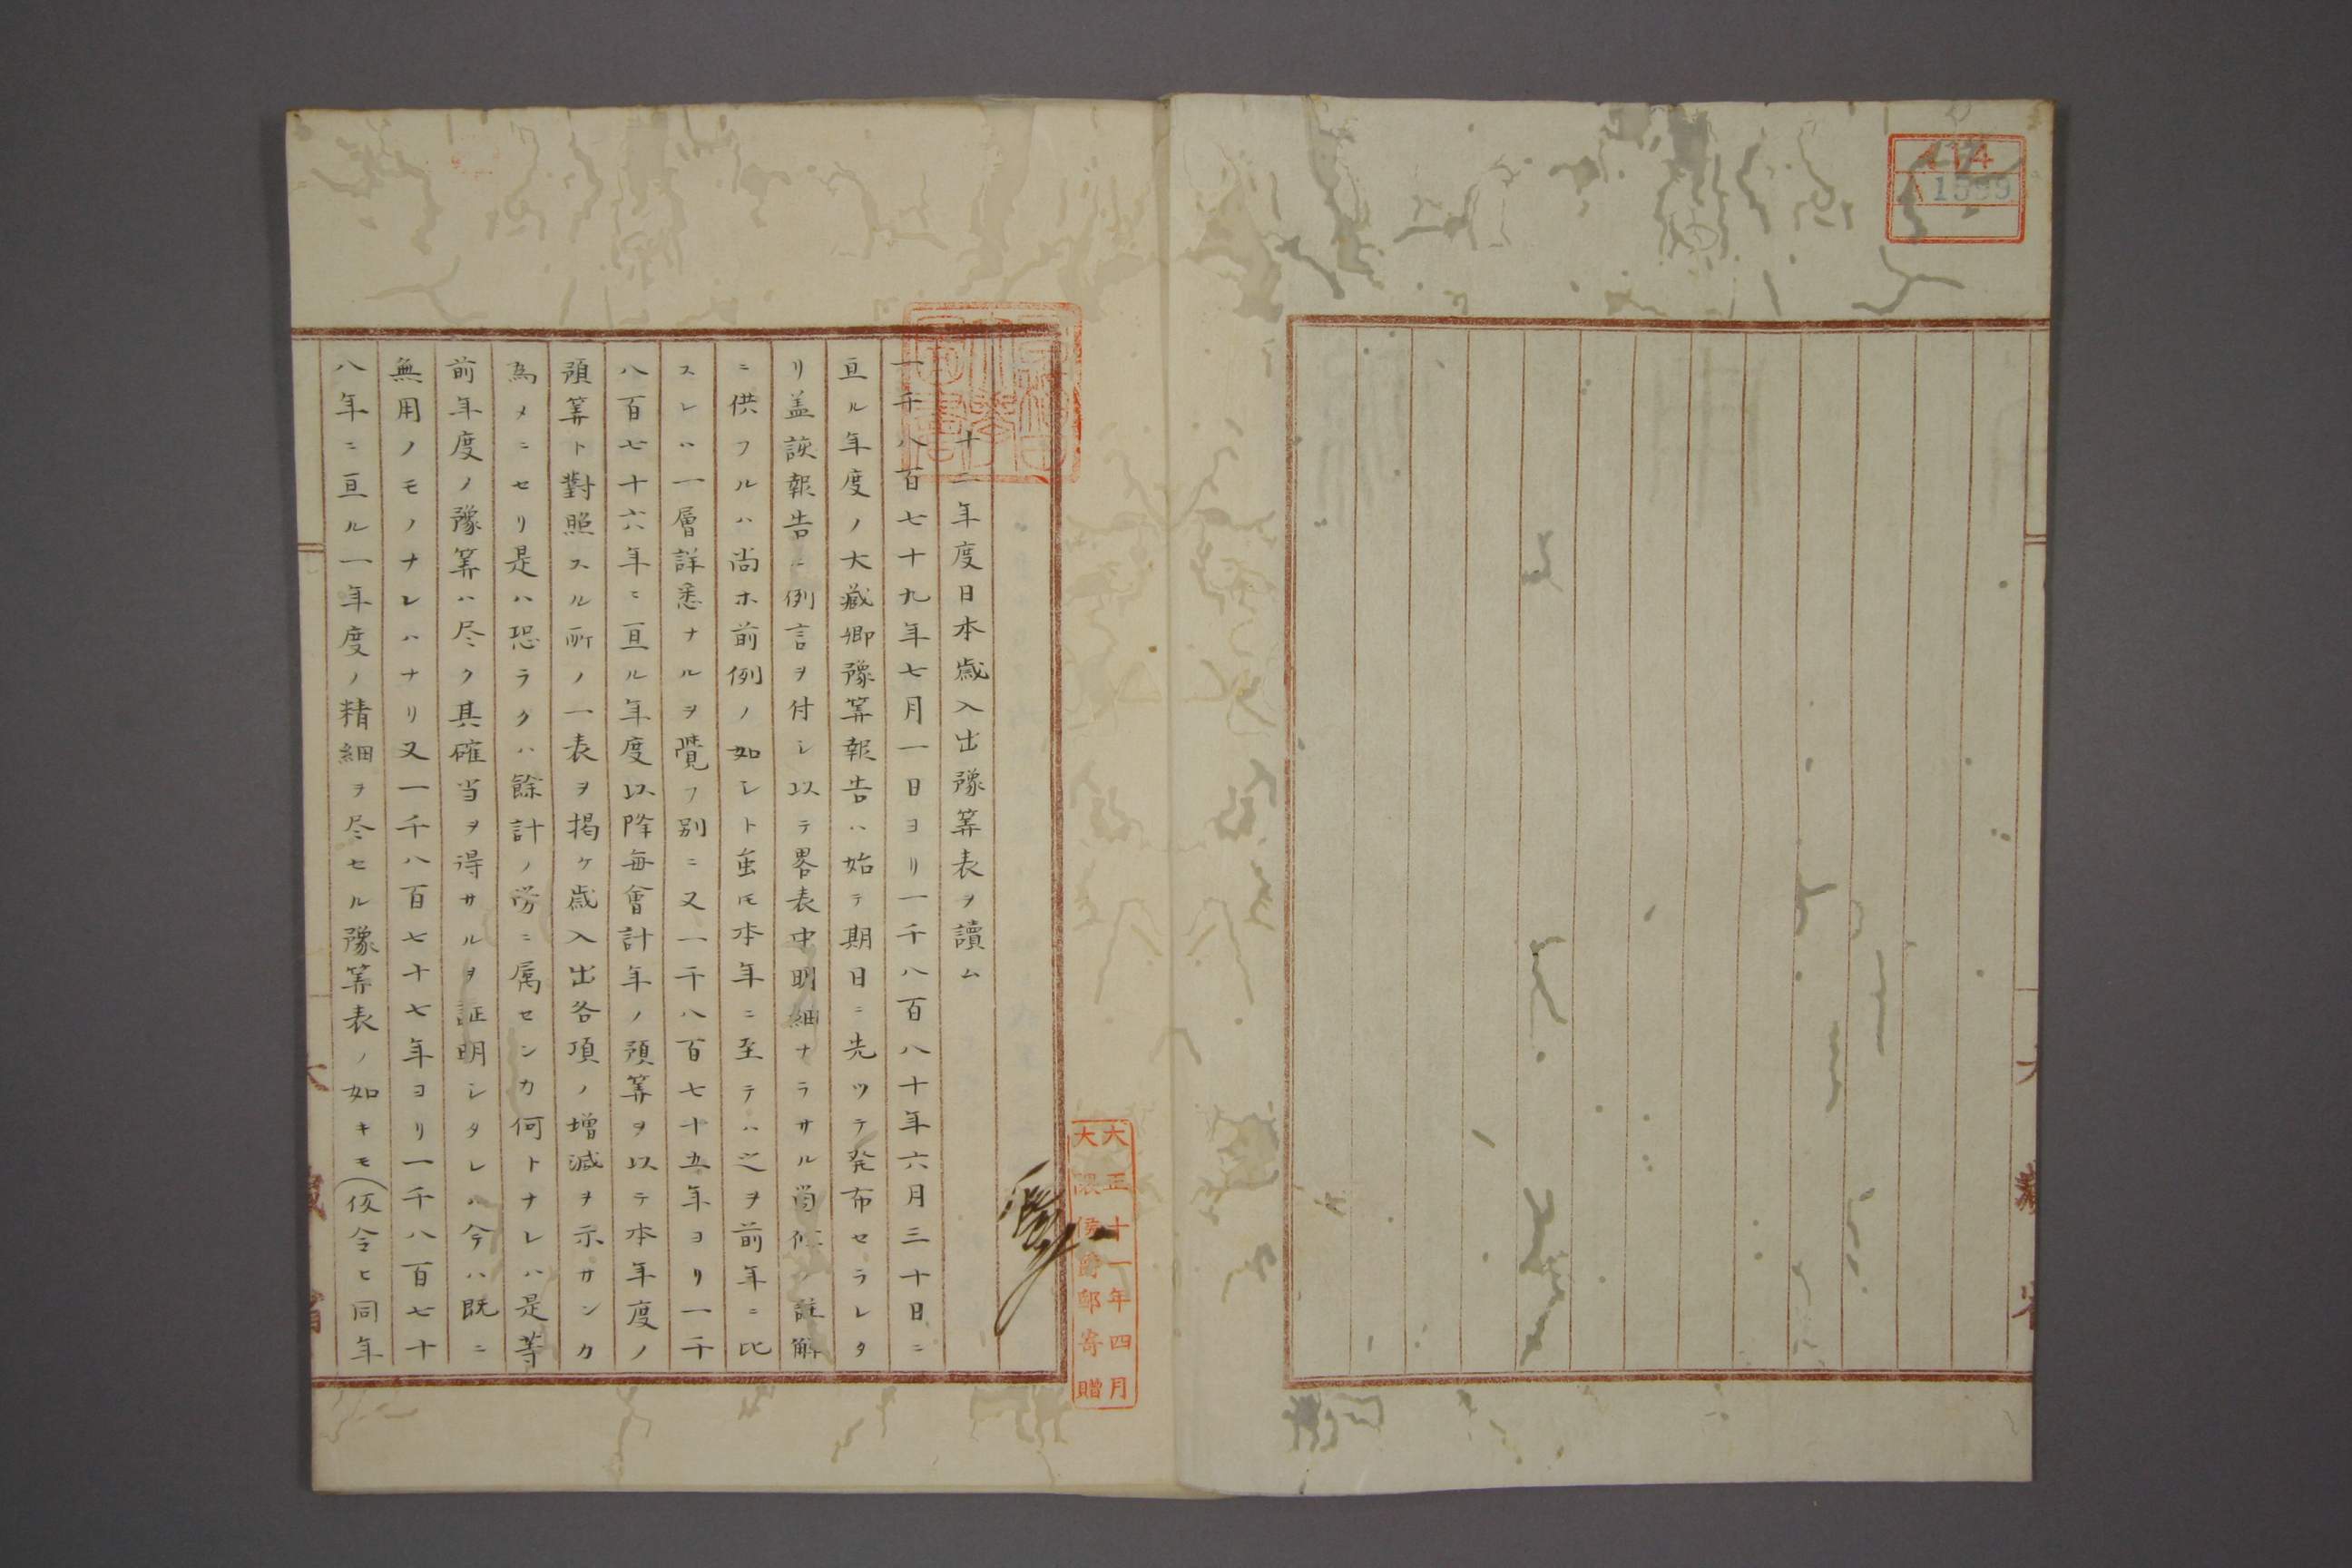 イ14
A1599
十二年度日本歳入出豫算表ヲ讀ム
一千八百七十九年七月一日ヨリ一千八百八十年六月三十日ニ
亘ル年度ノ大藏卿豫算報告ハ始テ期日ニ先ツテ発布セラレタ
リ蓋該報告ニ例言ヲ付シ以テ畧表中明細ナラサル
註解
ニ供フルハ尚ホ前例ノ如シト虽モ本年ニ至テハ之ヲ前年ニ比
スレハ一層詳悉ナルヲ覺フ別ニ又一千八百七十五年ヨリ一千
八百七十六年ニ亘ル年度以降毎會計年ノ預算ヲ以テ本年度ノ
預算ト對照スル所ノ一表ヲ掲ケ歳入出各項ノ増減ヲ示サンカ
為メニセリ是ハ恐ラクハ餘計ノ労ニ属センカ何トナレハ是等
前年度ノ豫算ハ尽ク其確当ヲ得サルヲ証明シタレハ今ハ既ニ
無用ノモノナレハナリ又一千八百七十七年ヨリ一千八百七十
八年ニ亘ル一年度ノ精細ヲ尽セル豫算表ノ如キモ(仮令ヒ同年
大正十一年四月
大隈侯爵邸寄贈
大藏省